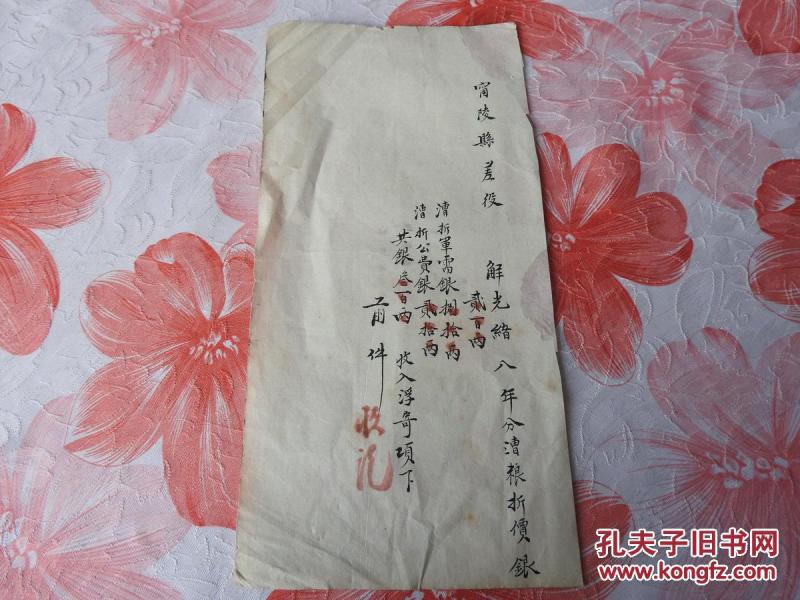 甯陵縣差役 解光緒八年分漕粮折價銀
貳百兩
漕折軍需銀捌拾兩
漕折公費銀貳拾兩
共銀叁百兩 收入浮寄項下
前件 收訖
孔夫子旧书网
www.kongfz.com